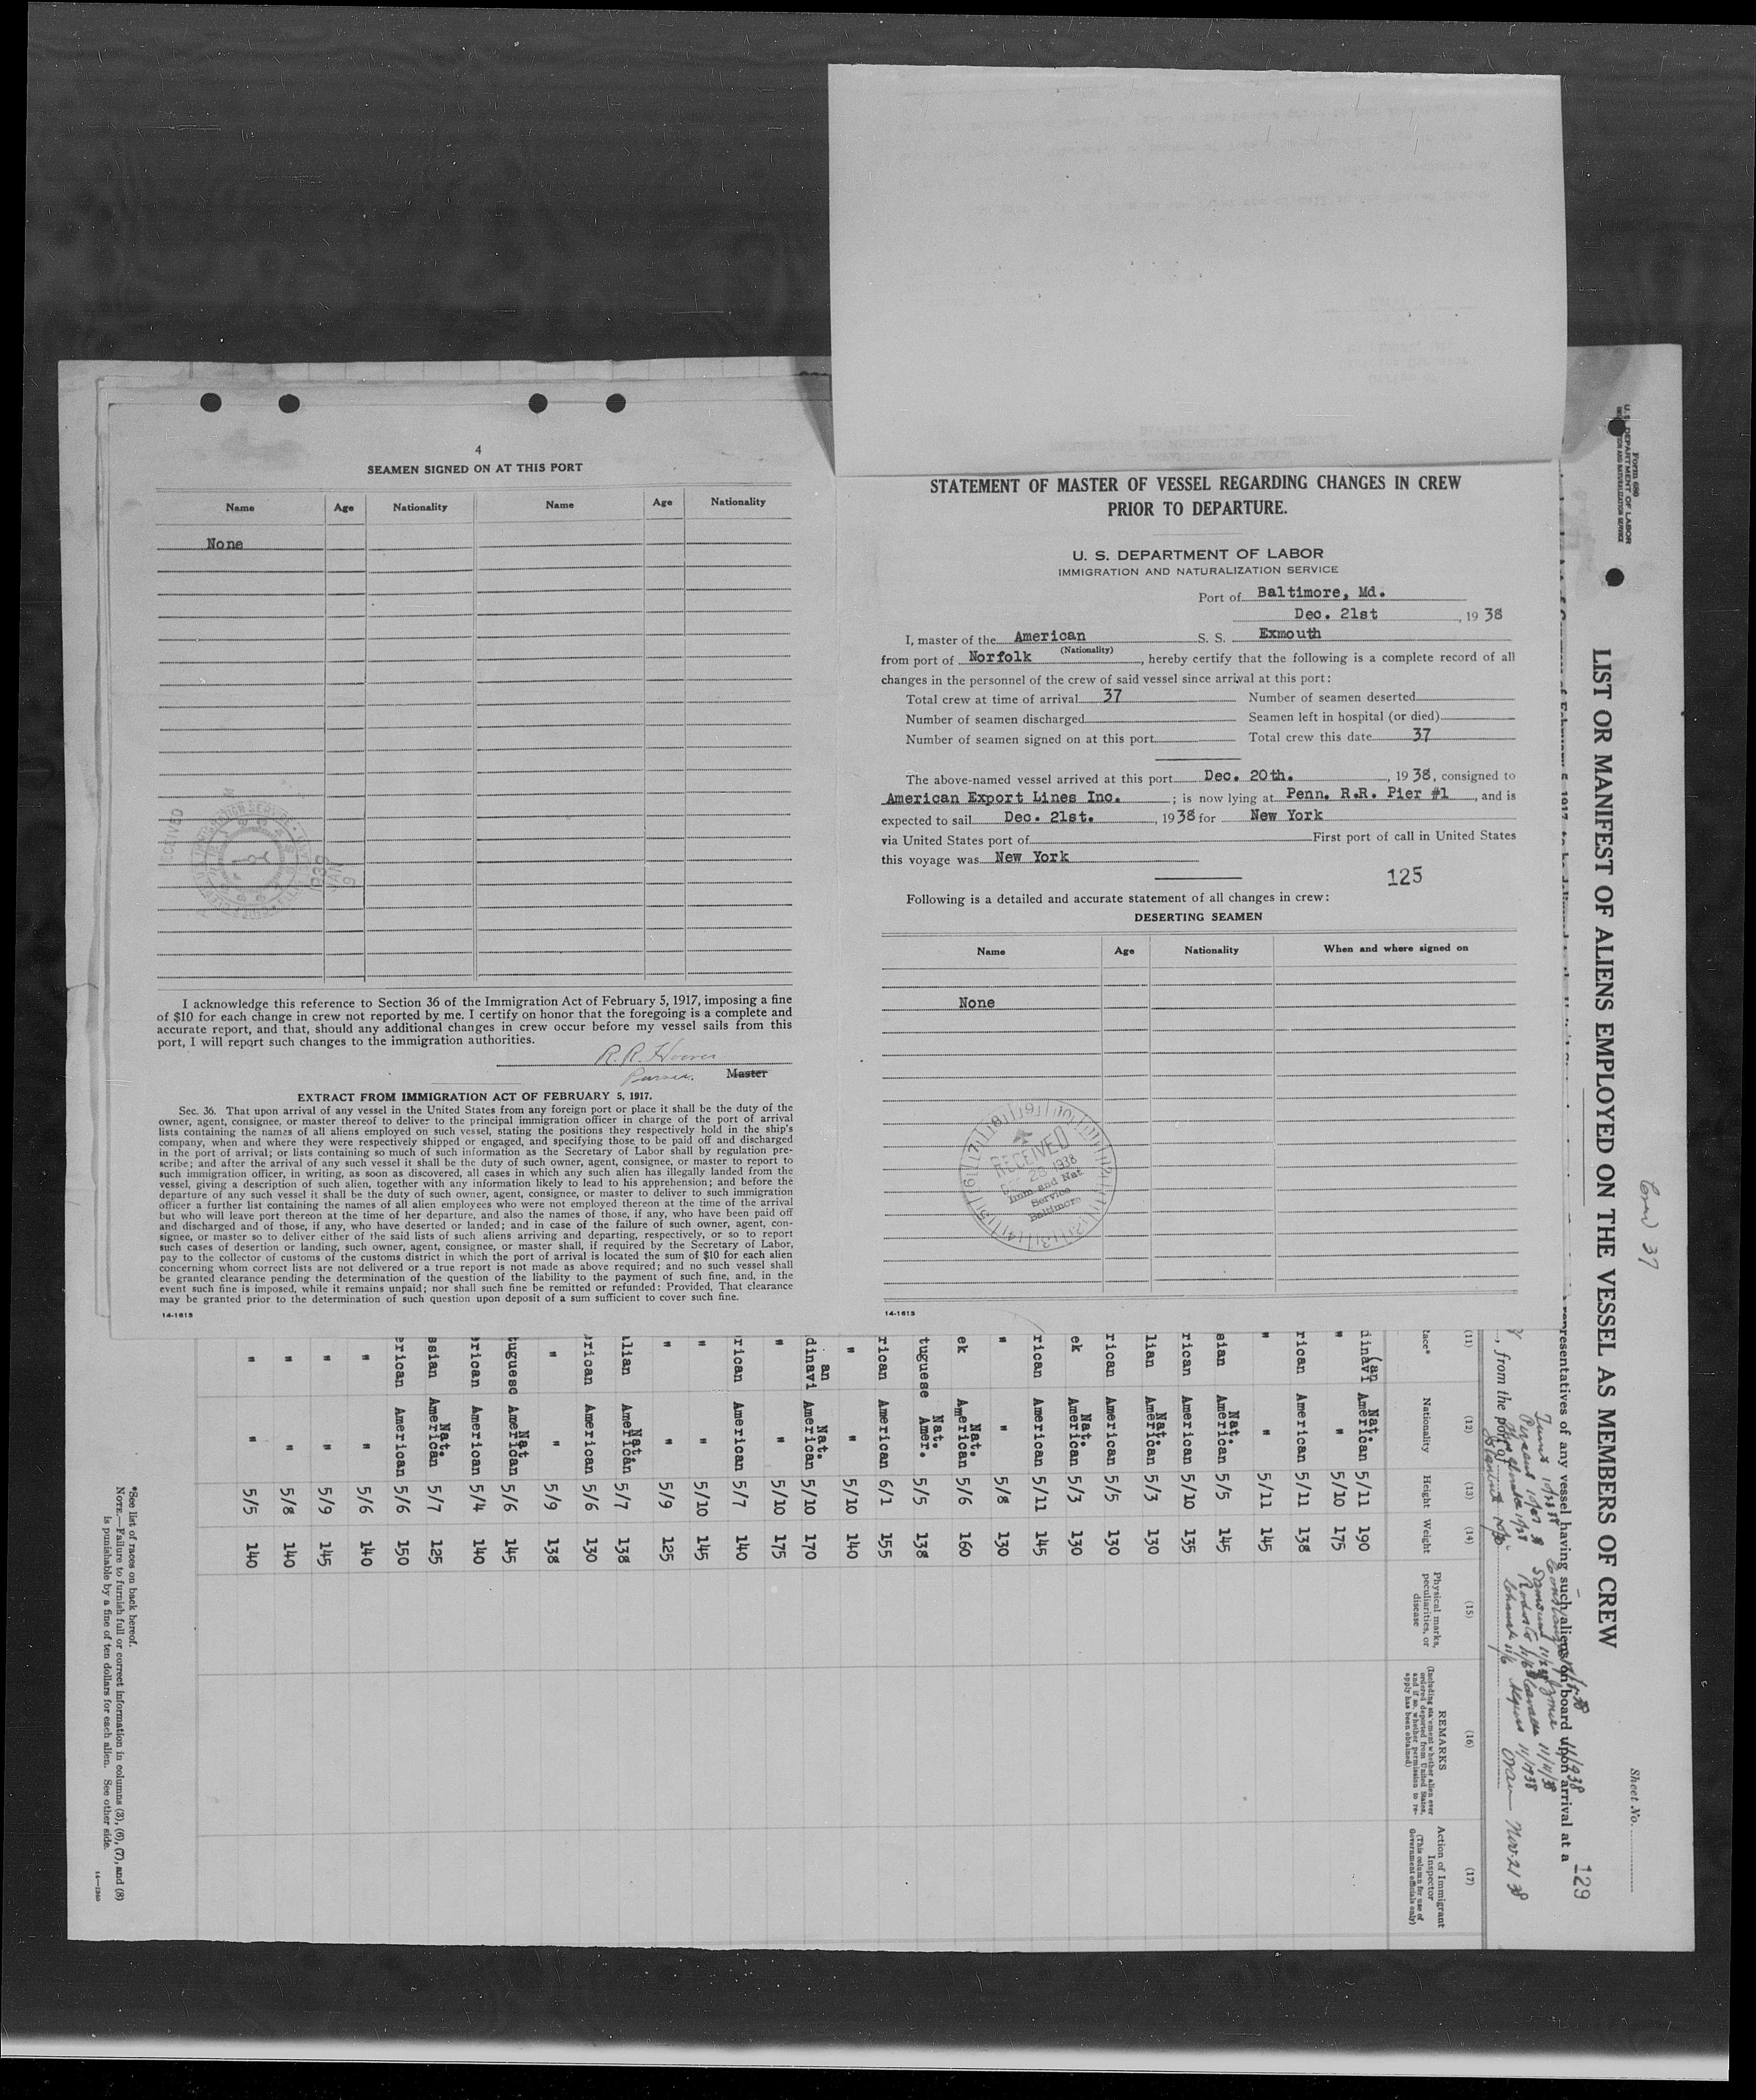 4
SEAMEN SIGNED ON AT THIS PORT
Name Age Nationality Name Age Nationality
None
I acknowledge this reference to Section 36 of the Immigration Act of February 5, 1917, imposing a fine
of $10 for each change in crew not reported by me. I certify on honor that the foregoing is a complete and
accurate report, and that, should any additional changes in crew occur before my vessel sails from this
port, I will report such changes to the immigration authorities.
R. R. Hoover
Purser. Master
EXTRACT FROM IMMIGRATION ACT OF FEBRUARY 5, 1917.
Sec. 36. That upon arrival of any vessel in the United States from any foreign port or place it shall be the duty of the
owner, agent, consignee, or master thereof to deliver to the principal immigration officer in charge of the port of arrival
lists containing the names of all aliens employed on such vessel, stating the positions they respectively hold in the ship's
company, when and where they were respectively shipped or engaged, and specifying those to be paid off and discharged
in the port of arrival; or lists containing so much of such information as the Secretary of Labor shall by regulation pre-
scribe; and after the arrival of any such vessel it shall be the duty of such owner, agent, consignee, or master to report to
such immigration officer, in writing, as soon as discovered, all cases in which any such alien has illegally landed from the
vessel, giving a description of such alien, together with any information likely to lead to his apprehension; and before the
departure of any such vessel it shall be the duty of such owner, agent, consignee, or master to deliver to such immigration
officer a further list containing the names of all alien employees who were not employed thereon at the time of the arrival
but who will leave port thereon at the time of her departure, and also the names of those, if any, who have been paid off
and discharged and of those, if any, who have deserted or landed; and in case of the failure of such owner, agent, con-
signee, or master so to deliver either of the said lists of such aliens arriving and departing, respectively, or so to report
such cases of desertion or landing, such owner, agent, consignee, or master shall, if required by the Secretary of Labor,
pay to the collector of customs of the customs district in which the port of arrival is located the sum of $10 for each alien
concerning whom correct lists are not delivered or a true report is not made as above required; and no such vessel shall
be granted clearance pending the determination of the question of the liability to the payment of such fine, and, in the
event such fine is imposed, while it remains unpaid; nor shall such fine be remitted or refunded: Provided, That clearance
may be granted prior to the determination of such question upon deposit of a sum sufficient to cover such fine.
14-1613
STATEMENT OF MASTER OF VESSEL REGARDING CHANGES IN CREW
PRIOR TO DEPARTURE.
U. S. DEPARTMENT OF LABOR
IMMIGRATION AND NATURALIZATION SERVICE
Port of Baltimore, Md.
Dec. 21st , 19 38
I, master of the American S. S. Exmouth
(Nationality)
from port of Norfolk , hereby certify that the following is a complete record of all
changes in the personnel of the crew of said vessel since arrival at this port:
Total crew at time of arrival 37 Number of seamen deserted
Number of seamen discharged Seamen left in hospital (or died)
Number of seamen signed on at this port Total crew this date 37
The above-named vessel arrived at this port Dec. 20th. , 19 38, consigned to
American Export Lines Inc. ; is now lying at Penn. R.R. Pier #1 , and is
expected to sail Dec. 21st. , 19 38 for New York
via United States port of First port of call in United States
this voyage was New York
125
Following is a detailed and accurate statement of all changes in crew:
DESERTING SEAMEN
Name Age Nationality When and where signed on
None
RECEIVED
1938
Imm. and Nat
Service
Baltimore
14-1613
Form 680
U. S. DEPARTMENT OF LABOR
Crew 37
Sheet No.
129
LIST OR MANIFEST OF ALIENS EMPLOYED ON THE VESSEL AS MEMBERS OF CREW
representatives of any vessel having such aliens on board upon arrival at a
, from the port of
(11) (12) (13) (14) (15) (16) (17)
Nationality Height Weight Physical marks, peculiarities, or disease REMARKS Action of Immigrant Inspector
(Including statement whether alien ever ordered deported from United States, and if so, whether permission to re-apply has been obtained)
(This column for use of Government officials only)
dinavi(an Nat. American 5/11 190
" " 5/10 175
rican American 5/11 138
" " 5/11 145
sian Nat. American 5/5 145
rican American 5/10 135
lian Nat. American 5/3 130
rican American 5/5 130
ek Nat. American 5/3 130
rican American 5/11 145
" " 5/8 130
ek Nat. American 5/6 160
tuguese Nat. Amer. 5/5 138
rican American 6/1 155
" " 5/10 140
dinavi an Nat. American 5/10 170
" " 5/10 175
rican American 5/7 140
" " 5/10 145
" " 5/9 125
lian Nat American 5/7 138
rican American 5/6 130
" " 5/9 138
tuguese Nat American 5/6 145
rican American 5/4 140
ssian Nat. American 5/7 125
erican American 5/6 150
" " 5/6 140
" " 5/9 145
" " 5/8 140
" " 5/5 140
*See list of races on back hereof.
NOTE.—Failure to furnish full or correct information in columns (3), (6), (7), and (8)
is punishable by a fine of ten dollars for each alien. See other side.
14—1240